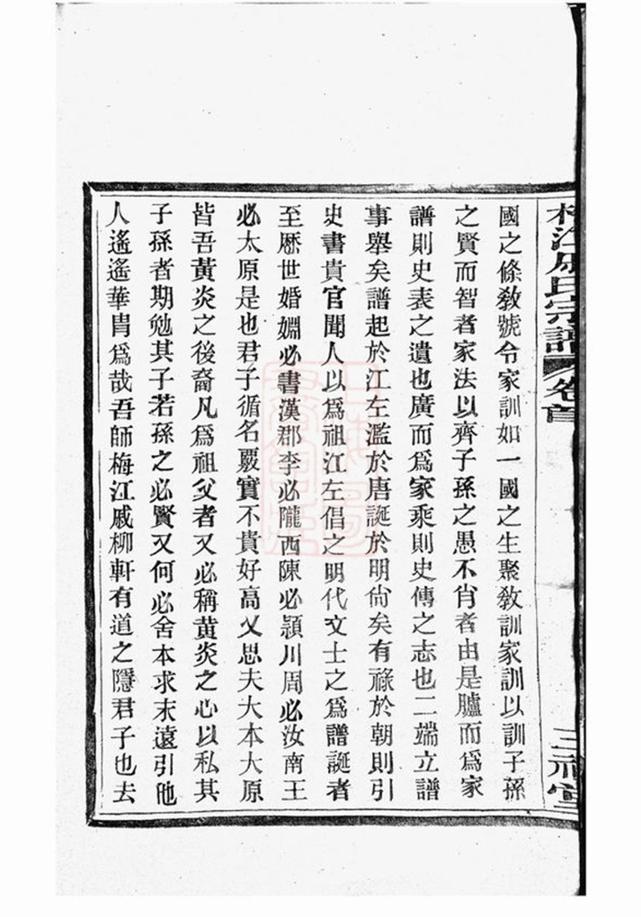 梅江戚氏宗譜 卷首 三
國之條敎號令家訓如一國之生聚敎訓家訓以訓子孫
之賢而智者家法以齊子孫之愚不肖者由是臚而爲家
譜則史表之遺也廣而爲家乘則史傳之志也二端立譜
事舉矣譜起於江左濫於唐誕於明尙矣有祿於朝則引
史書貴官聞人以爲祖江左倡之明代文士之爲譜誕者
至厯世婚婣必書漢郡李必隴西陳必潁川周必汝南王
必太原是也君子循名覈實不貴好高又思夫大本大原
皆吾黃炎之後裔凡爲祖父者又必稱黃炎之心以私其
子孫者期勉其子若孫之必賢又何必舍本求末遠引他
人遙遙華冑爲哉吾師梅江戚柳軒有道之隱君子也去